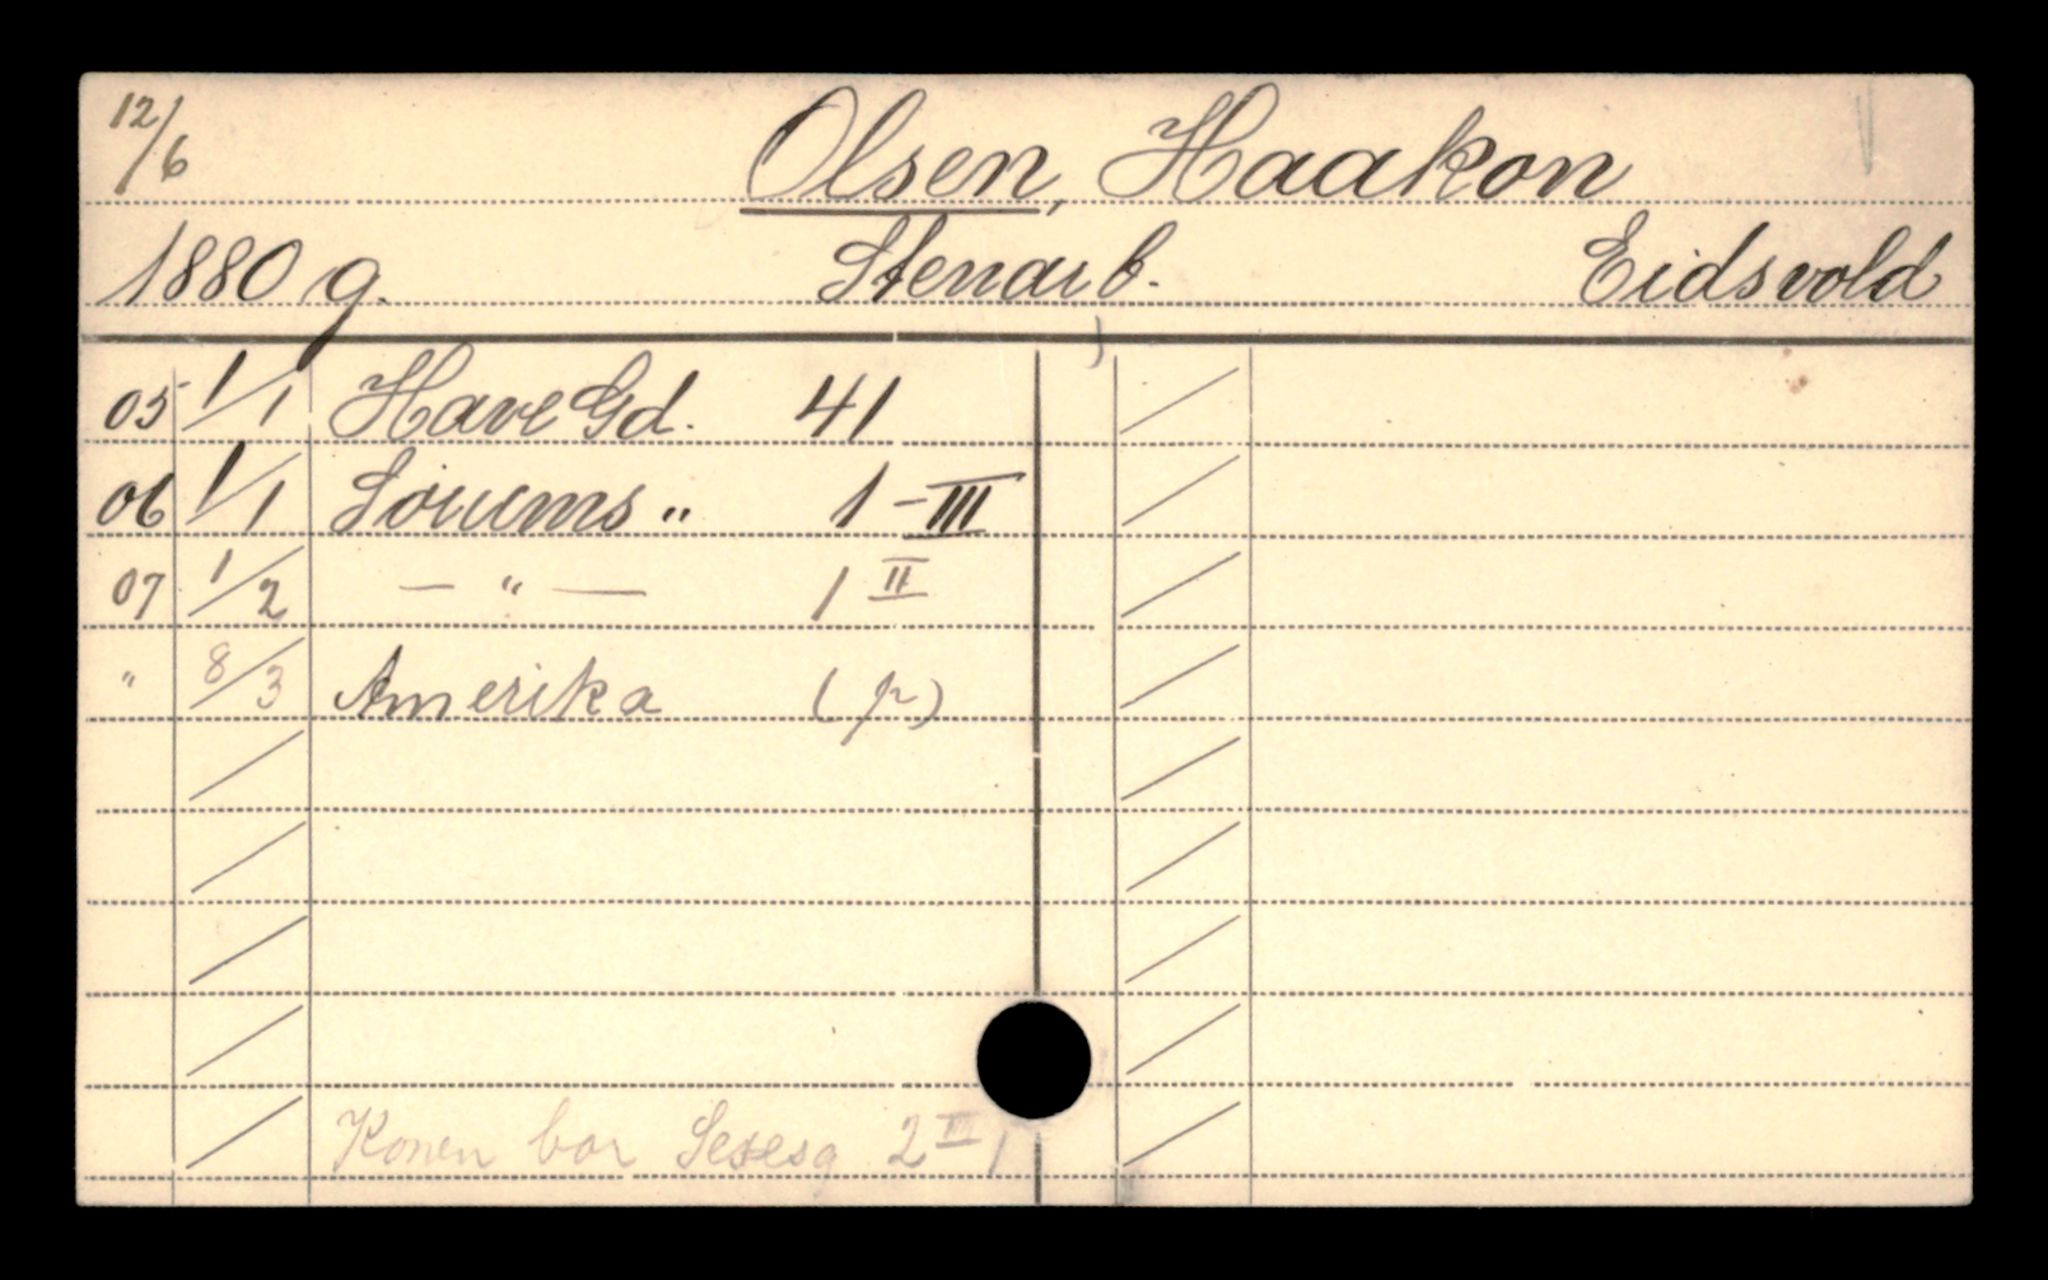 12/6 Olsen, Haakon
1880 g. Stenarb. Eidsvold
05 1/1 Have Gd. 41
06 1/1 Sörums " 1 - III
07 1/2 — " — 1 II
" 8/3 Amerika (p)
Konen bor 2 III